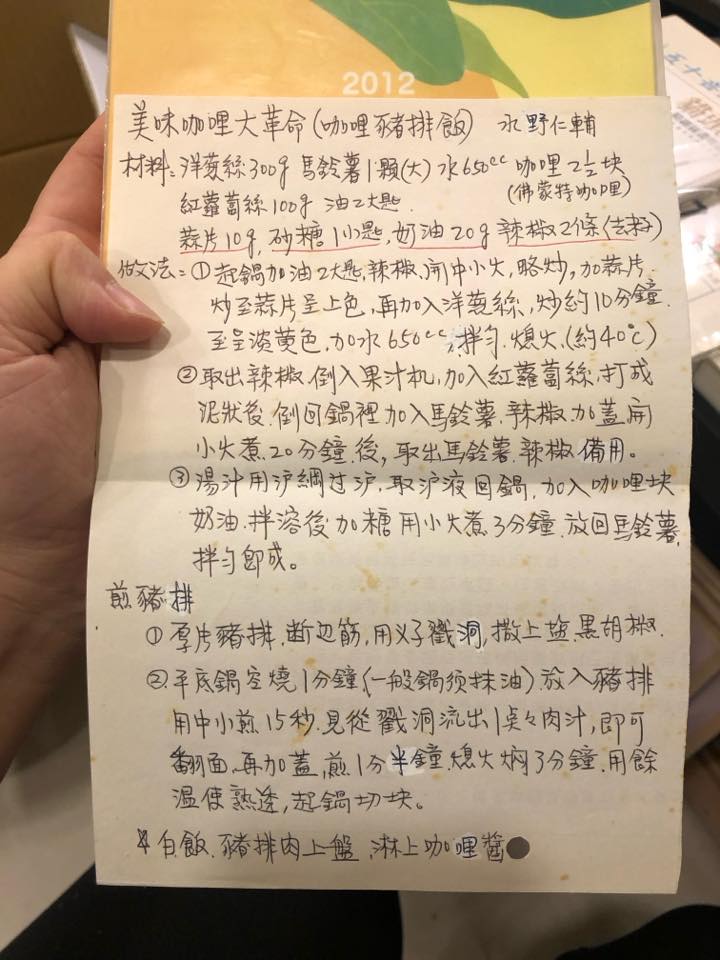 2012
美味咖哩大革命(咖哩豬排飯) 水野仁輔
材料:洋葱絲300g 馬鈴薯1顆(大) 水650cc 咖哩2½块
(佛蒙特咖哩)
紅蘿蔔絲100g 油2大匙.
蒜片10g, 砂糖1小匙, 奶油20g 辣椒2條(去籽)
做法:①起鍋加油2大匙,辣椒,開中小火,略炒,加蒜片.
炒至蒜片呈上色,再加入洋葱絲,炒約10分鐘.
至呈淡黄色,加水650cc,拌勻.熄火.(約40℃)
②取出辣椒.倒入果汁机,加入紅蘿蔔絲,打成
泥狀後.倒回鍋裡.加入馬鈴薯.辣椒.加蓋.開
小火煮.20分鐘.後,取出馬鈴薯.辣椒備用。
③湯汁用沪網过沪.取沪液回鍋,加入咖哩块
奶油.拌溶後加糖用小火煮3分鐘.放回馬鈴薯,
拌勻即成。
煎豬排
①厚片豬排.断边筋,用叉子戳洞,撒上盐.黒胡椒.
②平底鍋空燒1分鐘(一般鍋须抹油).放入豬排
用中小煎15秒.見從戳洞流出1点々肉汁,即可
翻面.再加蓋,煎1分半鐘.熄火焖3分鐘.用餘
温使熟透,起鍋切块。
白飯.豬排肉上盤.淋上咖哩醬